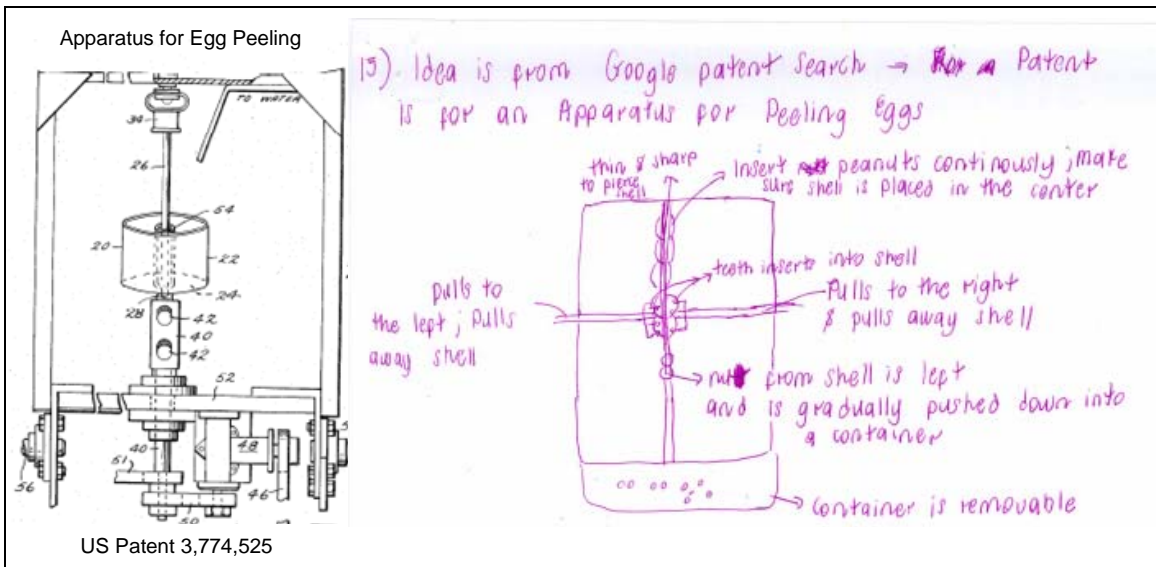 Apparatus for Egg Peeling
TO WATER
34
26
54
20
22
24
28
42
40
42
52
40
48
51
56
46
50
US Patent 3,774,525
15). Idea is from Google patent search → Patent
is for an Apparatus for Peeling Eggs
thin & sharp
to pierce
shell
Insert peanuts continously ; make
sure shell is placed in the center
teeth inserts into shell
pulls to
the left ; pulls
away shell
Pulls to the right
& pulls away shell
→ nut from shell is left
and is gradually pushed down into
a container
→ Container is removable